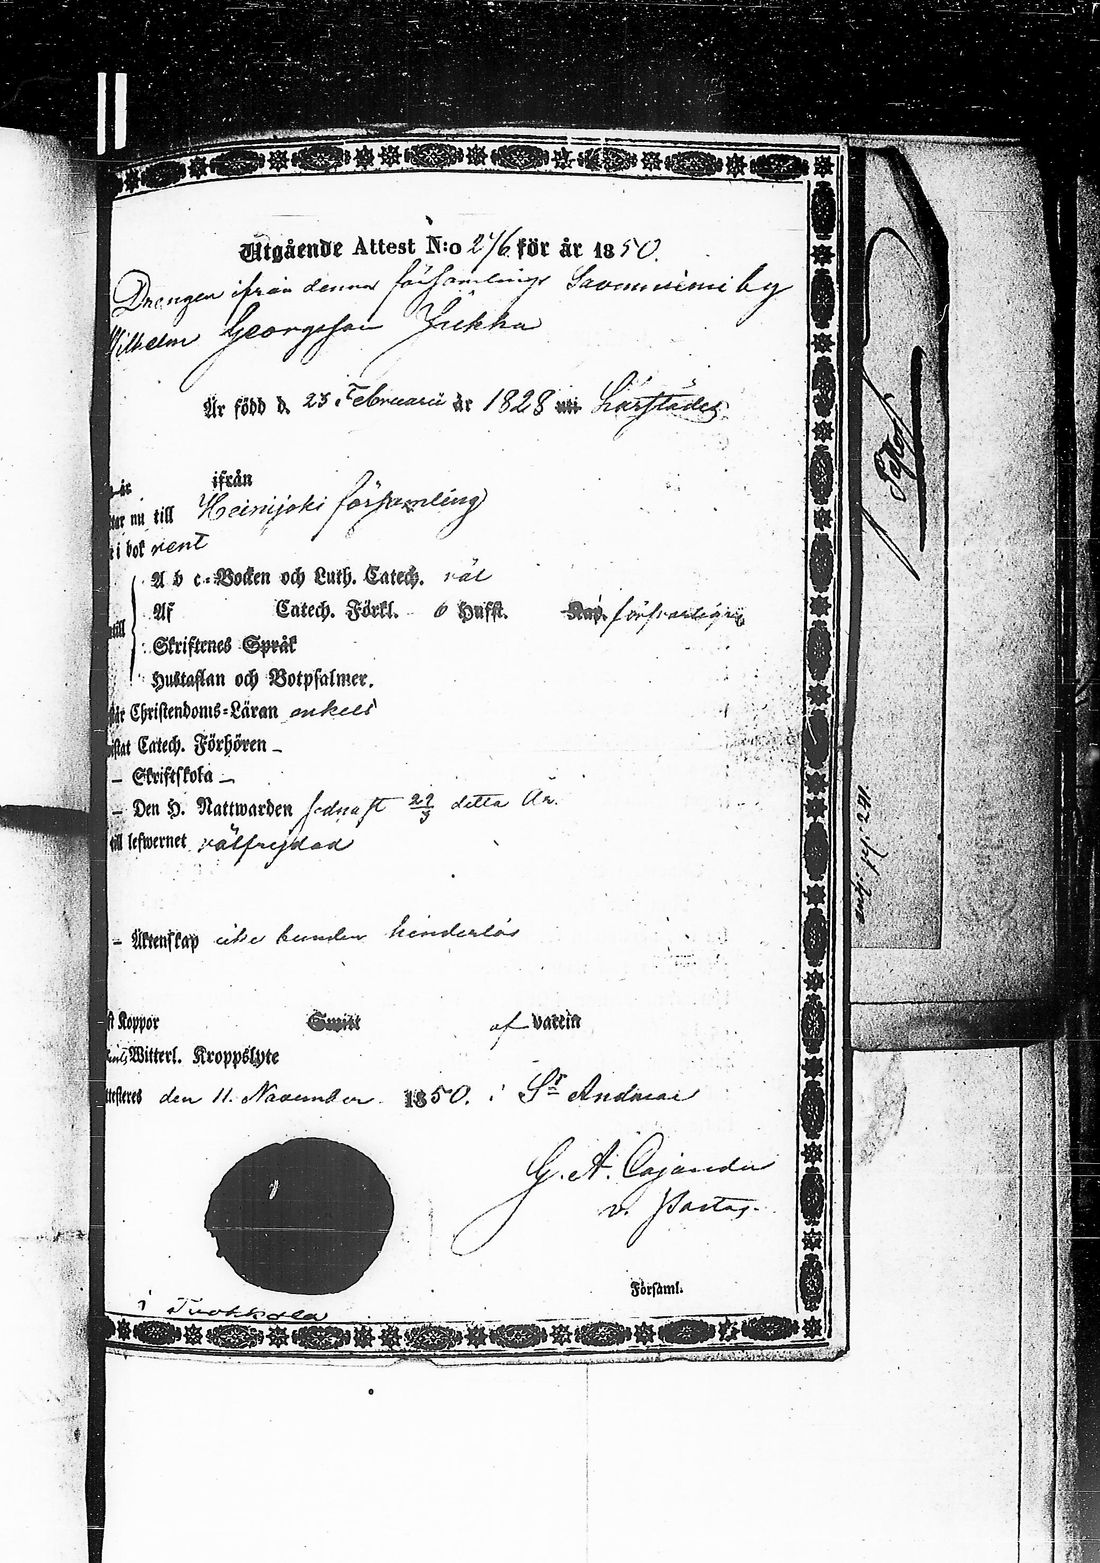 Utgående Attest N:o 276 för år 1850.
Drengen ifrån denna församlings Savonniemi by
Wilhelm Georgsson Jukka
Är född d. 23 Februarii år 1828
ifrån
nu till Heinijoki församling
i bok rent
A b c-Bocken och Luth. Catech. väl
Af Catech. Förkl. 6 Hufst. Kap. försvarligen
Skriftenes Språk
Hustaflan och Botpsalmer.
Christendoms-Läran enkelt
Catech. Förhören -
- Skriftskola -
- Den H. Nattwarden sednast 29/9 detta År.
till lefwernet välfrejdad
- Äktenskap icke bunden hinderlös
Koppor Smitt af vaccin
Witterl. Kroppslyte
den 11. November 1850. i St Andreae
G. A. Cajander
v. Pastor.
Församl.
i